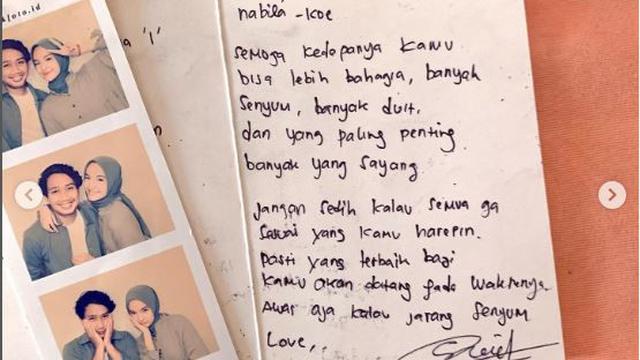 foto.id
a 'I'
nabila - koe
semoga kedepanya kamu
bisa lebih bahagia, banyak
senyum, banyak duit.
dan yang paling penting
banyak yang sayang
jangan sedih kalau semua ga
sesuai yang kamu harepin.
pasti yang terbaik bagi
kamu akan datang pada waktunya
Awas aja kalau jarang senyum
Love,